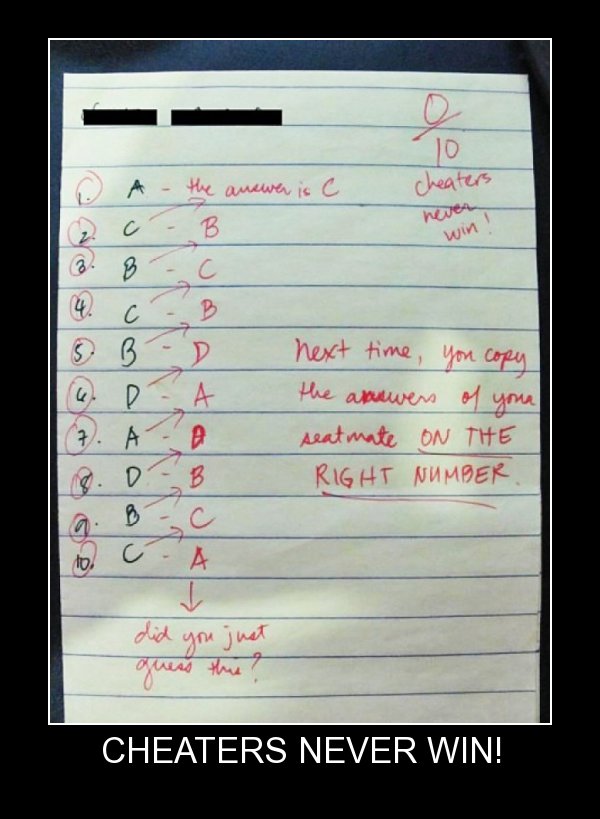 0
10
cheaters
never
win!
1. A - the answer is C
2. C - B
3. B - C
4. C - B
5. B - D
6. D - A
7. A - D
8. D - B
9. B - C
10. C - A
Next time, you copy
the answers of your
seatmate ON THE
RIGHT NUMBER.
did you just
guess this?
CHEATERS NEVER WIN!